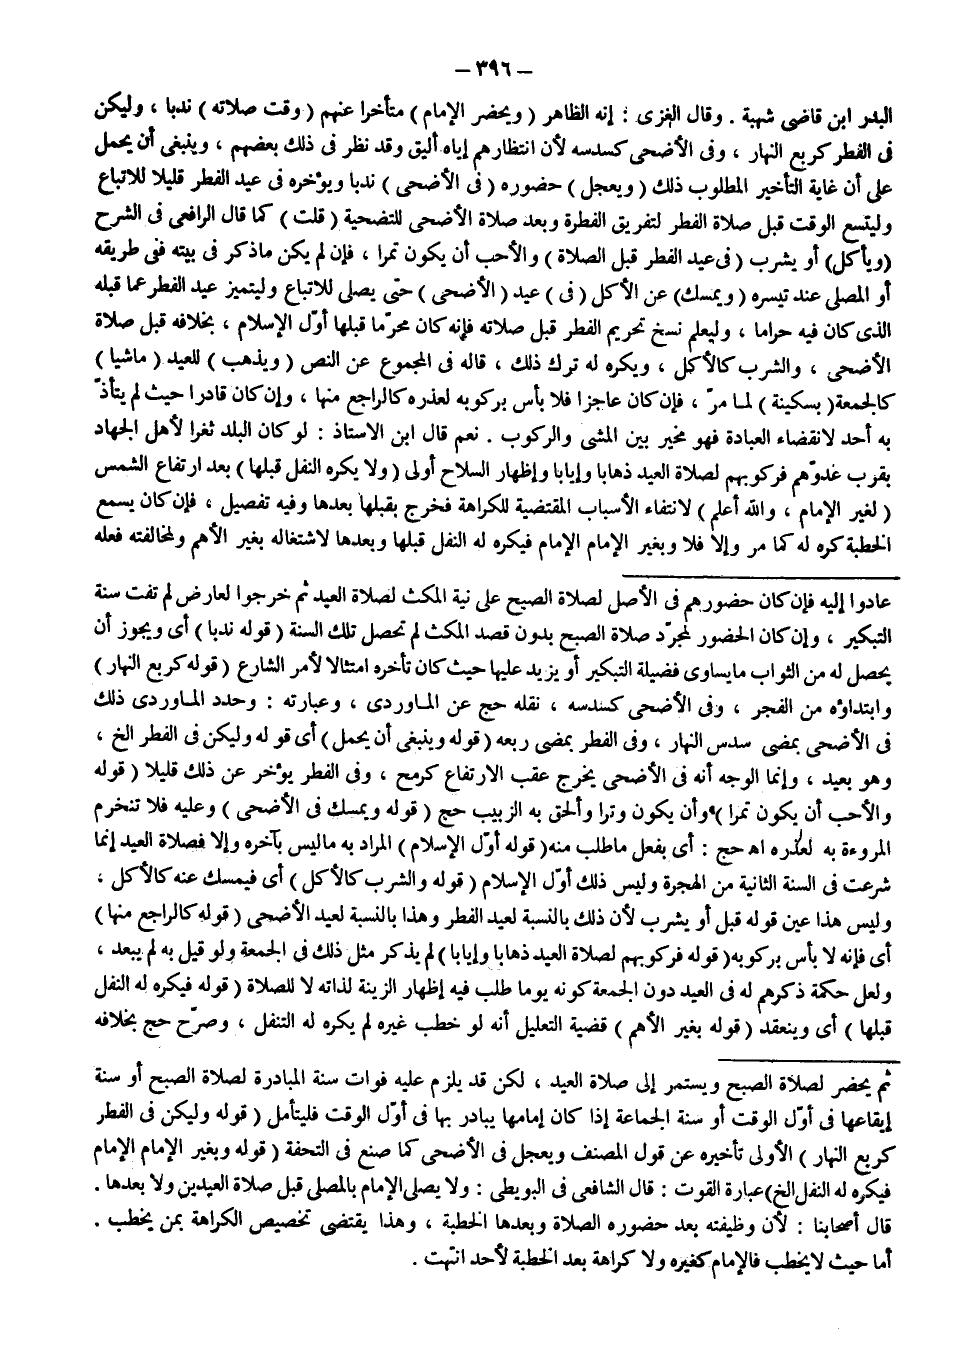 – ٣٩٦ –
البدر ابن قاضى شهبة . وقال الغزى : إنه الظاهر ( ويحضر الإمام ) متأخرا عنهم ( وقت صلاته ) ندبا ، وليكن
فى الفطر كربع النهار ، وفى الأضحى كسدسه لأن انتظارهم إياه أليق وقد نظر فى ذلك بعضهم ، وينبغى أن يحمل
على أن غاية التأخير المطلوب ذلك ( ويعجل ) حضوره ( فى الأضحى ) ندبا ويؤخره فى عيد الفطر قليلا للاتباع
وليتسع الوقت قبل صلاة الفطر لتفريق الفطرة وبعد صلاة الأضحى للتضحية ( قلت ) كما قال الرافعى فى الشرح
(ويأكل) أو يشرب ( فى عيد الفطر قبل الصلاة ) والأحب أن يكون تمرا ، فإن لم يكن ماذكر فى بيته ففى طريقه
أو المصلى عند تيسره ( ويمسك) عن الأكل ( فى ) عيد ( الأضحى ) حتى يصلى للاتباع وليتميز عيد الفطر عما قبله
الذى كان فيه حراما ، وليعلم نسخ تحريم الفطر قبل صلاته فإنه كان محرّما قبلها أوّل الإسلام ، بخلافه قبل صلاة
الأضحى ، والشرب كالأكل ، ويكره له ترك ذلك ، قاله فى المجموع عن النص ( ويذهب ) للعيد ( ماشيا )
كالجمعة ( بسكينة ) لمـا مرّ ، فإن كان عاجزا فلا بأس بركوبه لعذره كالراجع منها ، وإن كان قادرا حيث لم يتأذّ
به أحد لانقضاء العبادة فهو مخير بين المشى والركوب . نعم قال ابن الاستاذ : لو كان البلد ثغرا لأهل الجهاد
بقرب عدوّهم فركوبهم لصلاة العيد ذهابا وإيابا وإظهار السلاح أولى ( ولا يكره النفل قبلها ) بعد ارتفاع الشمس
( لغير الإمام ، والله أعلم ) لانتفاء الأسباب المقتضية للكراهة فخرج بقبلها بعدها وفيه تفصيل ، فإن كان يسمع
الخطبة كره له كما مر وإلا فلا وبغير الإمام الإمام فيكره له النفل قبلها وبعدها لاشتغاله بغير الأهم ولمخالفته فعله
عادوا إليه فإن كان حضورهم فى الأصل لصلاة الصبح على نية المكث لصلاة العيد ثم خرجوا لعارض لم تفت سنة
التبكير ، وإن كان الحضور لمجرّد صلاة الصبح بدون قصد المكث لم تحصل تلك السنة ( قوله ندبا ) أى ويجوز أن
يحصل له من الثواب مايساوى فضيلة التبكير أو يزيد عليها حيث كان تأخره امتثالا لأمر الشارع ( قوله كربع النهار )
وابتداؤه من الفجر ، وفى الأضحى كسدسه ، نقله حج عن المـاوردى ، وعبارته : وحدد المـاوردى ذلك
فى الأضحى بمضى سدس النهار ، وفى الفطر بمضى ربعه ( قوله وينبغى أن يحمل ) أى قوله وليكن فى الفطر الخ ،
وهو بعيد ، وإنما الوجه أنه فى الأضحى يخرج عقب الارتفاع كرمح ، وفى الفطر يؤخر عن ذلك قليلا ( قوله
والأحب أن يكون تمرا ) وأن يكون وترا وألحق به الزبيب حج ( قوله ويمسك فى الأضحى ) وعليه فلا تنخرم
المروءة به لعذره اه حج : أى بفعل ماطلب منه ( قوله أوّل الإسلام ) المراد به ماليس بآخره وإلا فصلاة العيد إنما
شرعت فى السنة الثانية من الهجرة وليس ذلك أوّل الإسلام ( قوله والشرب كالأكل ) أى فيمسك عنه كالأكل ،
وليس هذا عين قوله قبل أو يشرب لأن ذلك بالنسبة لعيد الفطر وهذا بالنسبة لعيد الأضحى ( قوله كالراجع منها )
أى فإنه لا بأس بركوبه ( قوله فركوبهم لصلاة العيد ذهابا وإيابا ) لم يذكر مثل ذلك فى الجمعة ولو قيل به لم يبعد ،
ولعل حكمة ذكرهم له فى العيد دون الجمعة كونه يوما طلب فيه إظهار الزينة لذاته لا للصلاة ( قوله فيكره له النفل
قبلها ) أى وينعقد ( قوله بغير الأهم ) قضية التعليل أنه لو خطب غيره لم يكره له التنفل ، وصرّح حج بخلافه
ثم يحضر لصلاة الصبح ويستمر إلى صلاة العيد ، لكن قد يلزم عليه فوات سنة المبادرة لصلاة الصبح أو سنة
إيقاعها فى أوّل الوقت أو سنة الجماعة إذا كان إمامها يبادر بها فى أوّل الوقت فليتأمل ( قوله وليكن فى الفطر
كربع النهار ) الأولى تأخيره عن قول المصنف ويعجل فى الأضحى كما صنع فى التحفة ( قوله وبغير الإمام الإمام
فيكره له النفل الخ ) عبارة القوت : قال الشافعى فى البويطى : ولا يصلى الإمام بالمصلى قبل صلاة العيدين ولا بعدها .
قال أصحابنا : لأن وظيفته بعد حضوره الصلاة وبعدها الخطبة ، وهذا يقتضى تخصيص الكراهة بمن يخطب .
أما حيث لايخطب فالإمام كغيره ولا كراهة بعد الخطبة لأحد انتهت .